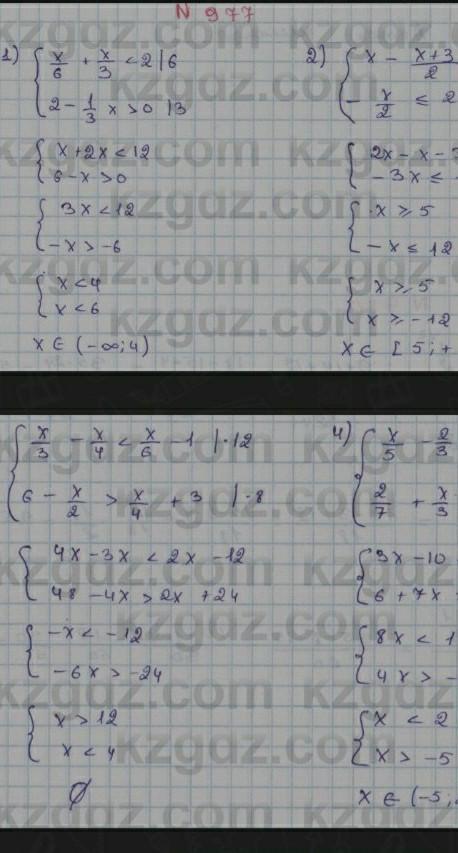 N 977
1) { x/6 + x/3 < 2 |6
2 - 1/3 x > 0 |3
{ x + 2x < 12
6 - x > 0
{ 3x < 12
-x > -6
{ x < 4
x < 6
x ∈ (-∞; 4)
2) { x - x+3/2
- x/2 ≤ 2
{ 2x - x -
-3x ≤
{ x ≥ 5
-x ≤ 12
{ x ≥ 5
x ≥ -12
x ∈ [5; +
{ x/3 - x/4 < x/6 - 1 |·12
6 - x/2 > x/4 + 3 |·8
{ 4x - 3x < 2x - 12
48 - 4x > 2x + 24
{ -x < -12
-6x > -24
{ x > 12
x < 4
∅
4) { x/5 - 2/3
2/7 + x/3
{ 3x - 10
6 + 7x
{ 8x < 1
4x > -
{ x < 2
x > -5
x ∈ (-5;
kzgdz.com